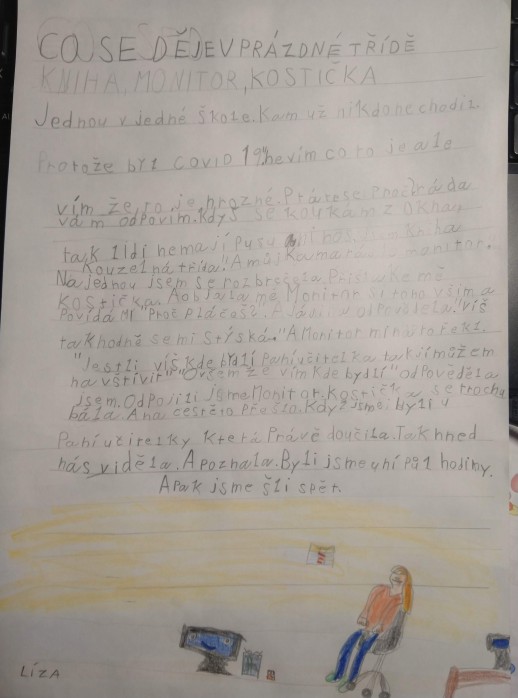 CO SE DĚJE V PRÁZDNÉ TŘÍDĚ
KNIHA, MONITOR, KOSTIČKA
Jednou v jedné škole. Kam už nikdo nechodil
Protože byl COVID 19. Nevím co to je ale
vím že to je hrozné. Ptáte se. Proč? ráda
vám odpovím. Když se koukám z okna,
tak lidi nemají pusu ani nos. kniha
Kouzelná třída. A můj kamarád monitor.
Najednou jsem se rozbrečela. Přišla ke mě
kostička. A objala mě. Monitor si toho všiml a
povídá mi "Proč pláčeš". A já odpověděla. "Víš
tak hodně se mi stýská." A Monitor mi na to řekl.
"Jestli víš kde bydlí Paní učitelka tak jí můžem
navštívit" "Ovšem že vím kde bydlí" odpověděla
jsem. Odpojili jsme Monitor. Kostička se trochu
bála. A na cestě to přešlo. Když jsme byli u
Paní učitelky která Právě doučila. Tak hned
nás viděla. A poznala. Byli jsme u ní půl hodiny.
A pak jsme šli spět.
LÍZA